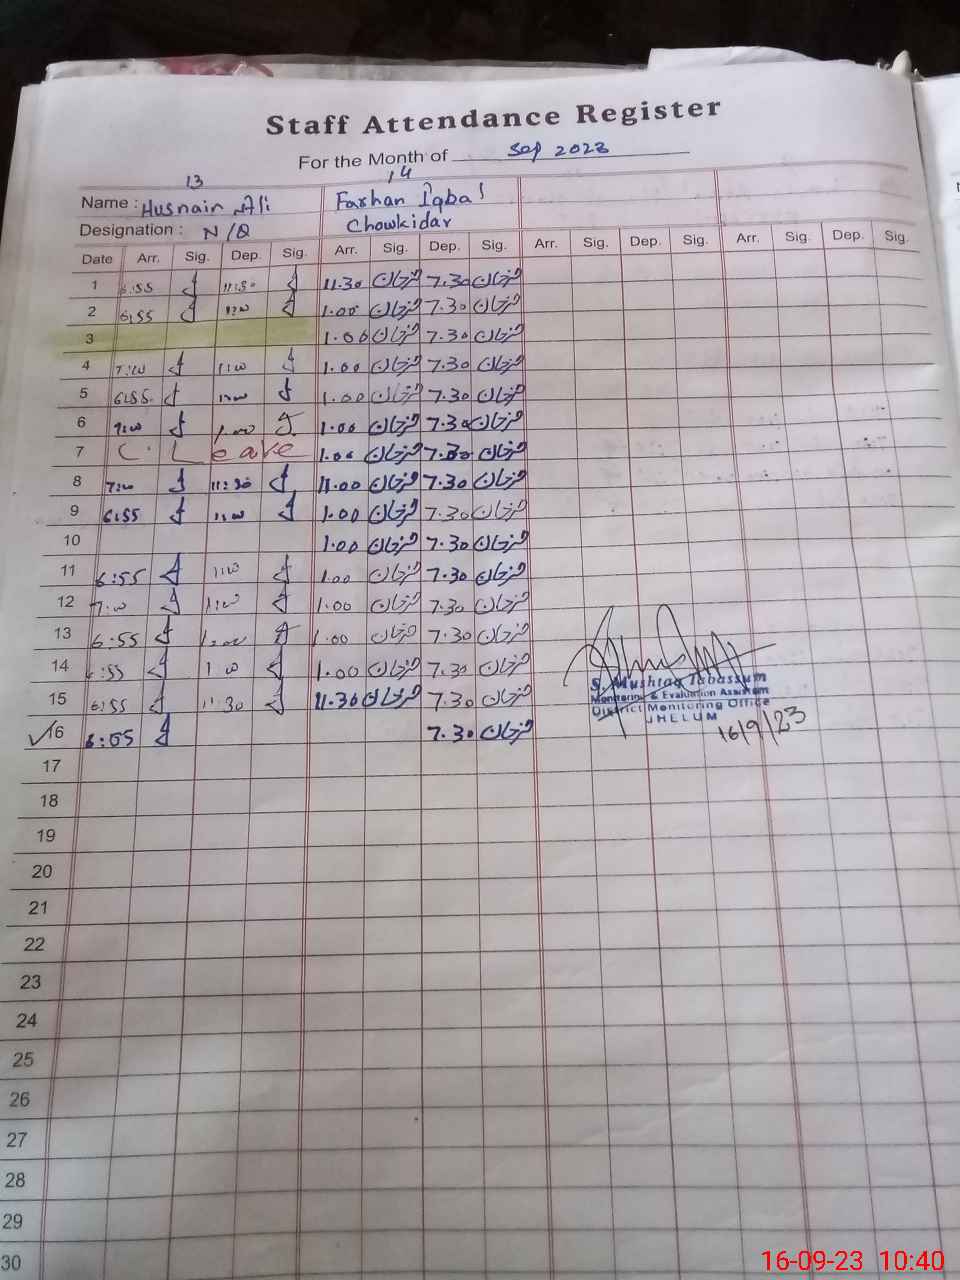 Staff Attendance Register
For the Month of Sep 2023
13 14
Name : Husnain Ali Farhan Iqbal
Designation : N/Q Chowkidar
Date Arr. Sig. Dep. Sig. Arr. Sig. Dep. Sig. Arr. Sig. Dep. Sig. Arr. Sig. Dep. Sig.
1 6:55 11:30 11.30 فرحان 7.30 فرحان
2 6:55 1:00 1.00 فرحان 7.30 فرحان
3 1.00 فرحان 7.30 فرحان
4 7:00 1:00 1.00 فرحان 7.30 فرحان
5 6:55 1:00 1.00 فرحان 7.30 فرحان
6 7:00 1:00 1.00 فرحان 7.30 فرحان
7 C. Leave 1.00 فرحان 7.30 فرحان
8 7:00 11:30 11.00 فرحان 7.30 فرحان
9 6:55 1:00 1.00 فرحان 7.30 فرحان
10 1.00 فرحان 7.30 فرحان
11 6:55 1:00 1.00 فرحان 7.30 فرحان
12 7:00 1:00 1.00 فرحان 7.30 فرحان
13 6:55 1:00 1.00 فرحان 7.30 فرحان
14 6:55 1:00 1.00 فرحان 7.30 فرحان
15 6:55 11:30 11.30 فرحان 7.30 فرحان
16 6:55 7.30 فرحان
S. Mushtaq Tabassum
Monitoring & Evaluation Assistant
District Monitoring Office
JHELUM
16/9/23
17
18
19
20
21
22
23
24
25
26
27
28
29
30
16-09-23 10:40